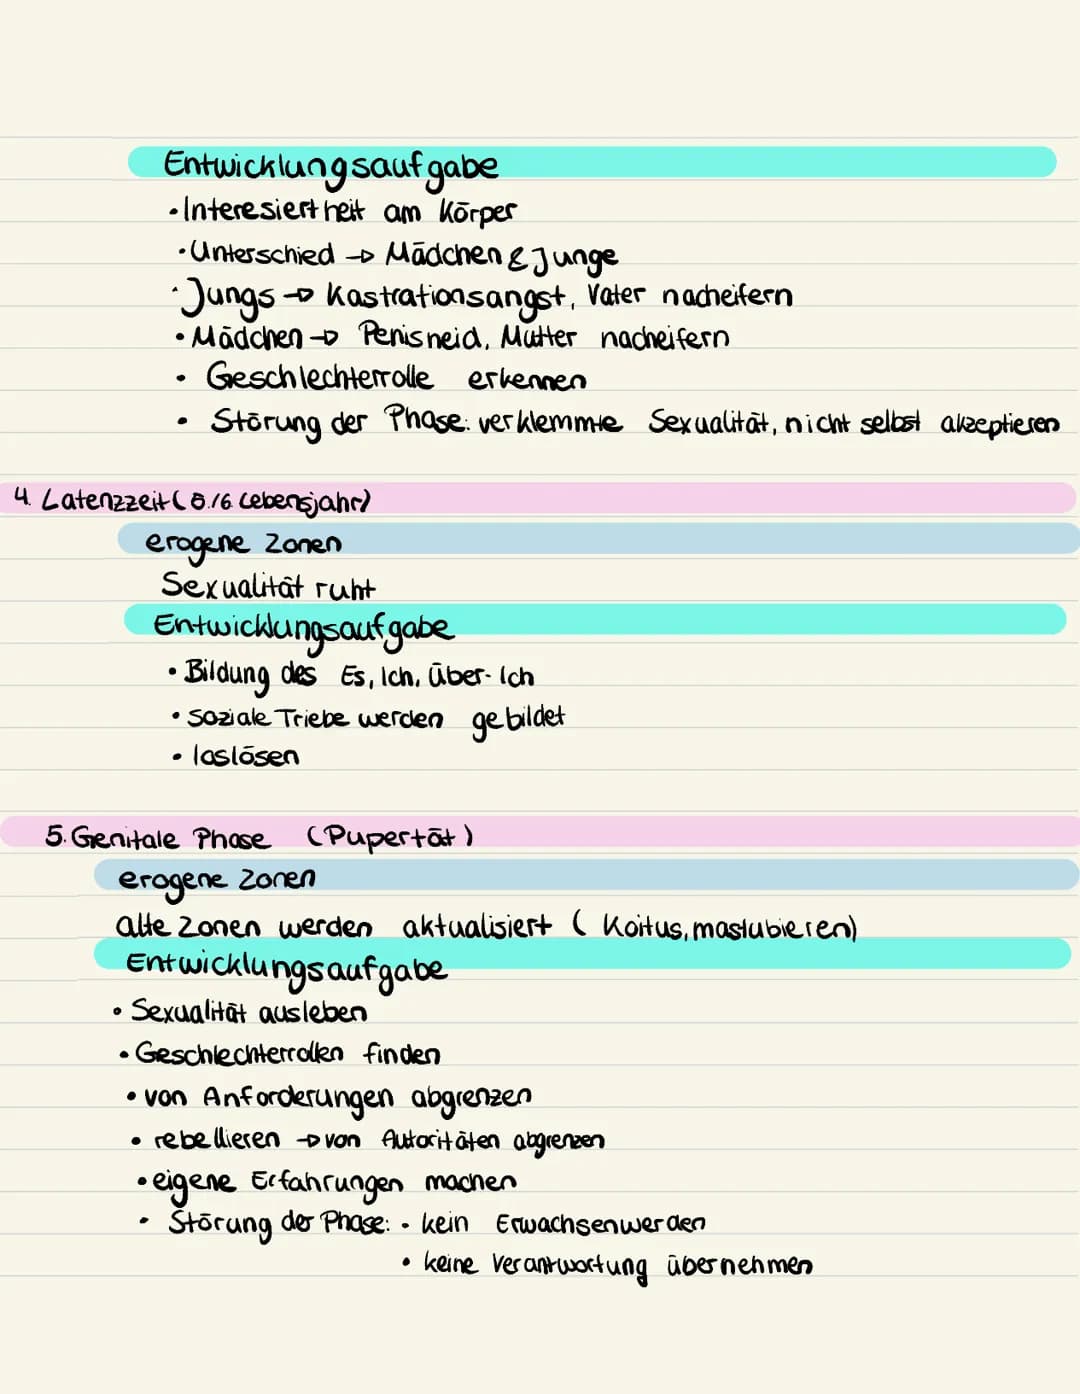 Entwicklungsaufgabe
• Interesiertheit am Körper
• Unterschied → Mädchen & Junge
• Jungs → Kastrationsangst, Vater nacheifern
• Mädchen → Penisneid, Mutter nacheifern
• Geschlechterrolle erkennen
• Störung der Phase: verklemmte Sexualität, nicht selbst akzeptieren
4. Latenzzeit (5./6. Lebensjahr)
erogene Zonen
Sexualität ruht
Entwicklungsaufgabe
• Bildung des Es, Ich, Über-Ich
• soziale Triebe werden gebildet
• loslösen
5. Genitale Phase (Pupertät)
erogene Zonen
alte Zonen werden aktualisiert (Koitus, mastubieren)
Entwicklungsaufgabe
• Sexualität ausleben
• Geschlechterrollen finden
• von Anforderungen abgrenzen
• rebellieren → von Autoritäten abgrenzen
• eigene Erfahrungen machen
• Störung der Phase: • kein Erwachsenwerden
• keine Verantwortung übernehmen